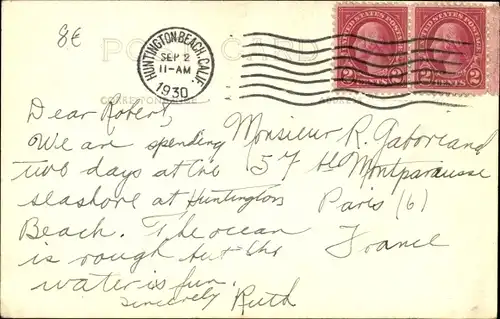 8€
POST CARD
HUNTINGTON BEACH, CALIF.
SEP 2
11-AM
1930
UNITED STATES POSTAGE
2 CENTS 2
UNITED STATES POSTAGE
2 CENTS 2
CORRESPONDENCE
ADDRESS
Dear Robert,
We are spending
two days at the
seashore at Huntington
Beach. The ocean
is rough but the
water is fun.
Sincerely Ruth
Monsieur R. Gaboriaud
57 Bd Montparnasse
Paris (6)
France